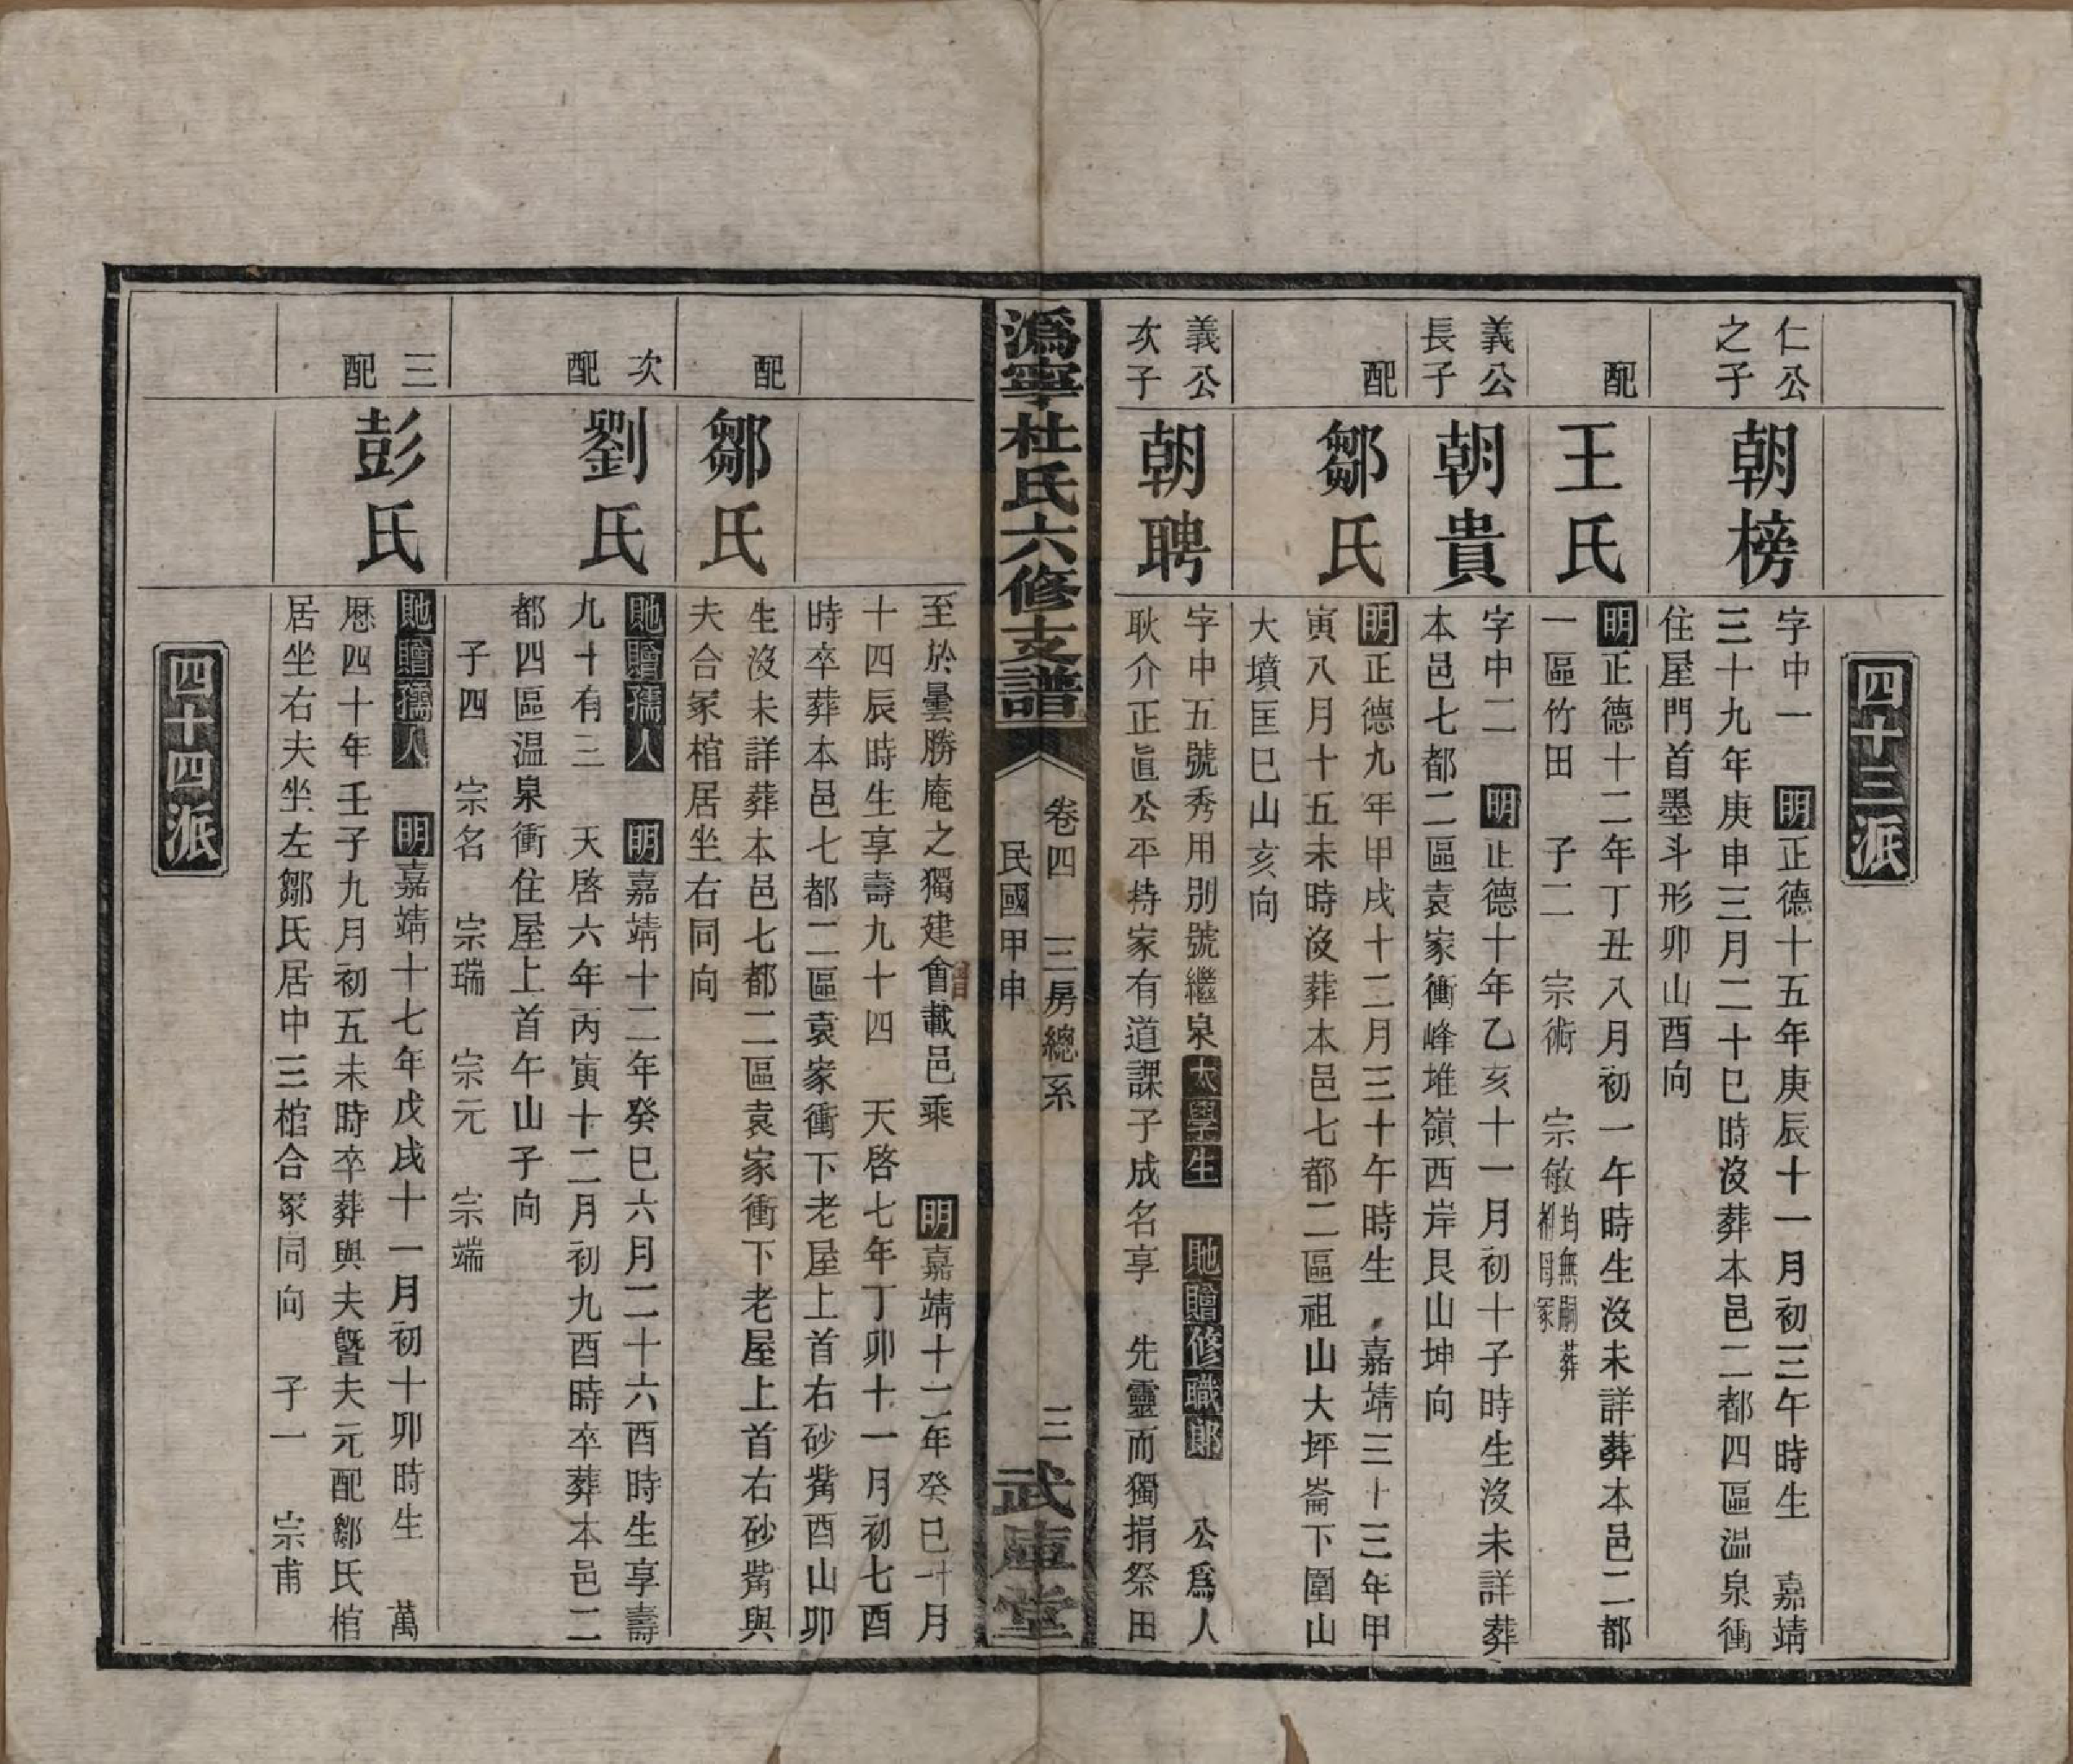 四十三派
仁公
之子
朝榜
字中一　明正德十五年庚辰十一月初三午時生　嘉靖
三十九年庚申三月二十巳時沒葬本邑二都四區温泉衝
住屋門首墨斗形卯山酉向
配
王氏
明正德十二年丁丑八月初一午時生沒未詳葬本邑二都
一區竹田　子二　宗術　宗敏均無嗣葬祔母冢
義公
長子
朝貴
字中二　明正德十年乙亥十一月初十子時生沒未詳葬
本邑七都二區袁家衝峰堆嶺西岸艮山坤向
配
鄒氏
明正德九年甲戌十二月三十午時生　嘉靖三十三年甲
寅八月十五未時沒葬本邑七都二區祖山大坪崙下圍山
大墳匡巳山亥向
義公
次子
朝聘
字中五號秀用別號繼泉太學生　貤贈修職郎　公爲人
耿介正眞公平持家有道課子成名享　先靈而獨捐祭田
潙寧杜氏六修支譜
卷四　三房總系
民國甲申
三
武庫堂
至於曇勝庵之獨建會載邑乘　明嘉靖十二年癸巳十月
十四辰時生享壽九十四　天啓七年丁卯十一月初七酉
時卒葬本邑七都二區袁家衝下老屋上首右砂觜酉山卯
配
鄒氏
生沒未詳葬本邑七都二區袁家衝下老屋上首右砂觜與
夫合冢棺居坐右同向
次
配
劉氏
貤贈孺人　明嘉靖十二年癸巳六月二十六酉時生享壽
九十有三　天啓六年丙寅十二月初九酉時卒葬本邑二
都四區温泉衝住屋上首午山子向
子四　宗名　宗瑞　宗元　宗端
三
配
彭氏
貤贈孺人　明嘉靖十七年戊戌十一月初十卯時生　萬
厯四十年壬子九月初五未時卒葬與夫曁夫元配鄒氏棺
居坐右夫坐左鄒氏居中三棺合冢同向　子一　宗甫
四十四派